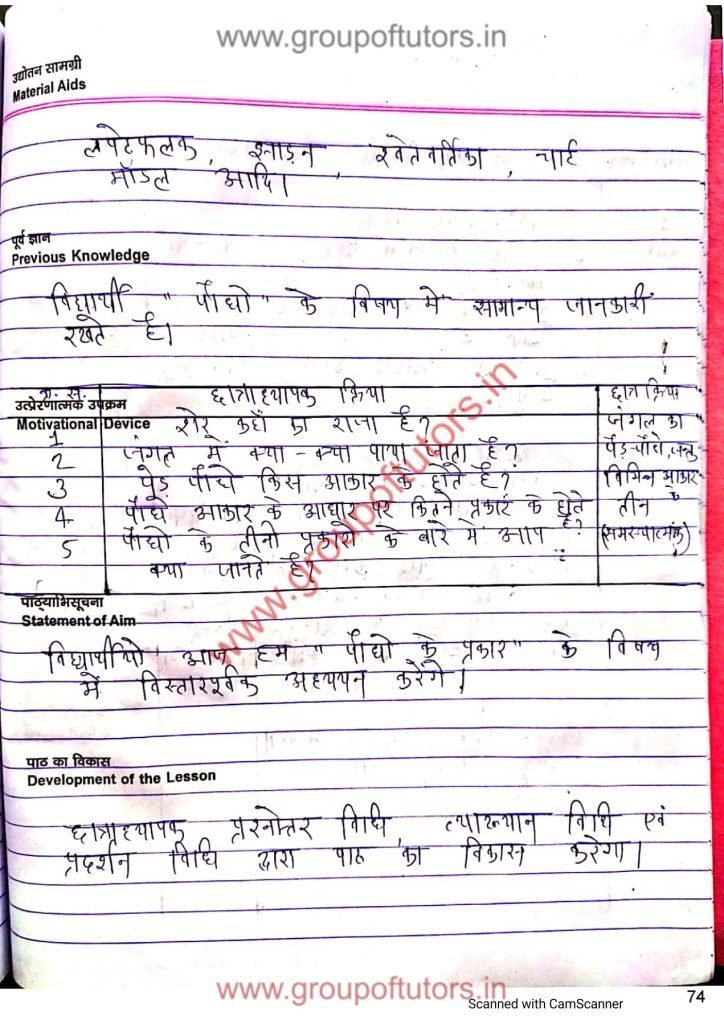 www.groupoftutors.in
उद्योतन सामग्री
Material Aids
लपेटफलक, झाड़न, श्वेतवर्तिका, चार्ट
मॉडल आदि।
पूर्व ज्ञान
Previous Knowledge
विद्यार्थी "पौधो" के विषय में सामान्य जानकारी
रखते है।
क्र. सं. छात्राध्यापक क्रिया छात्र क्रिया
उत्प्रेरणात्मक उपक्रम
Motivational Device
1 शेर कहाँ का राजा है? जंगल का
2 जंगल में क्या-क्या पाया जाता है? पेड़-पौधे, जन्तु
3 पेड़ पौधे किस आकार के होते है? विभिन्न आकार के
4 पौधे आकार के आधार पर कितने प्रकार के होते है? तीन
5 पौधो के तीनो प्रकारो के बारे में आप (समस्यात्मक)
क्या जानते है?
पाठ्याभिसूचना
Statement of Aim
विद्यार्थीयो आज हम "पौधो के प्रकार" के विषय
में विस्तारपूर्वक अध्ययन करेंगे।
पाठ का विकास
Development of the Lesson
छात्राध्यापक प्रश्नोत्तर विधि, व्याख्यान विधि एवं
प्रदर्शन विधि द्वारा पाठ का विकास करेगा।
www.groupoftutors.in
www.groupoftutors.in
Scanned with CamScanner
74